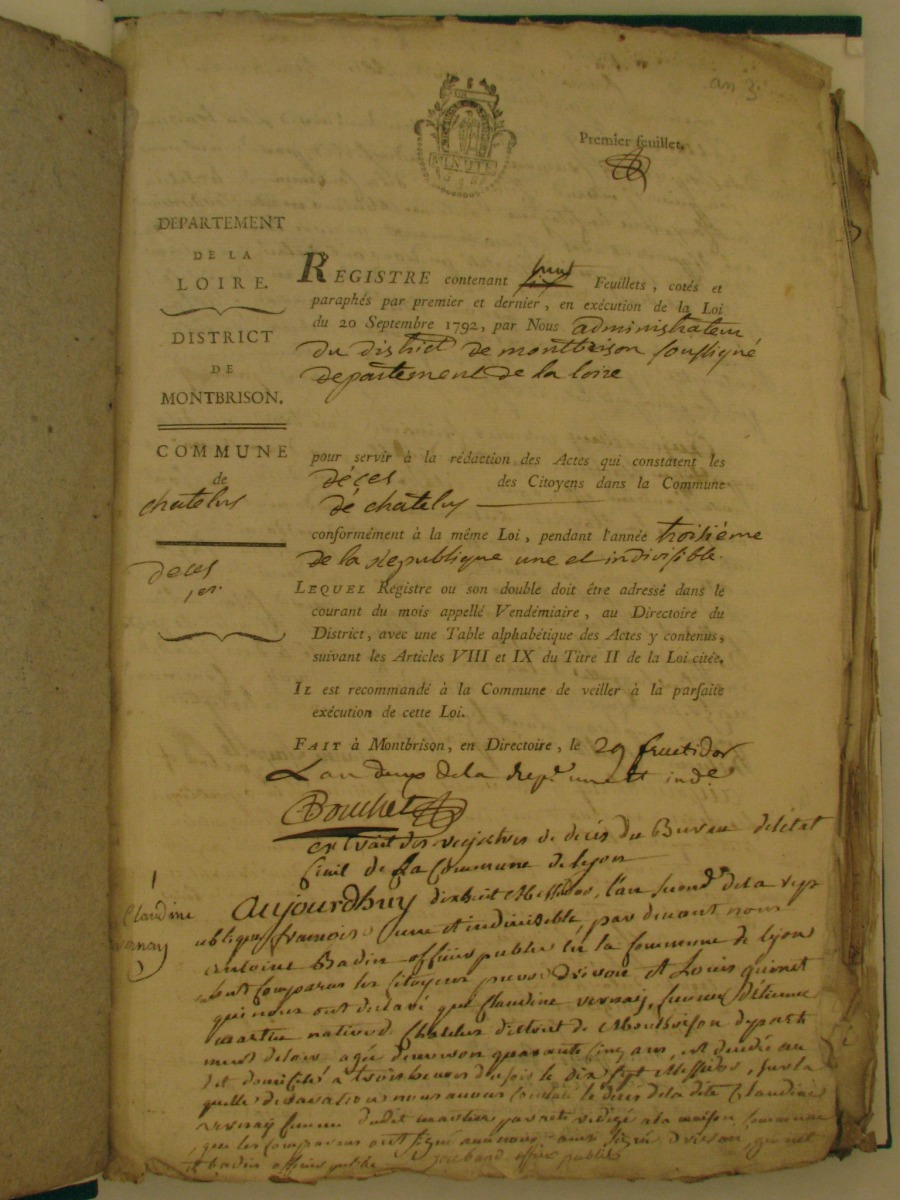 an 3
MINUTE
Premier feuillet.
DEPARTEMENT
DE LA
LOIRE.
DISTRICT
DE
MONTBRISON.
COMMUNE
de
chatelus
deces
1er.
REGISTRE contenant huit Feuillets, cotés et
paraphés par premier et dernier, en exécution de la Loi
du 20 Septembre 1792, par Nous administrateur
du district de montbrison soussigné
departement de la loire
pour servir à la rédaction des Actes qui constatent les
déces des Citoyens dans la Commune
dé chatelus
conformément à la même Loi, pendant l'année troisième
de la republique une et indivisible.
LEQUEL Registre ou son double doit être adressé dans le
courant du mois appellé Vendémiaire, au Directoire du
District, avec une Table alphabétique des Actes y contenus,
suivant les Articles VIII et IX du Titre II de la Loi citée.
IL est recommandé à la Commune de veiller à la parfaite
exécution de cette Loi.
FAIT à Montbrison, en Directoire, le 29 fructidor
L'an deux de la rep. une et ind.e
Bouchet
extrait des registres de décès du Bureau de l'état
Civil de La Commune de Lyon
1
Claudine
Aujourdhuy dixhuit Messidor, l'an second de la rep
ublique francoise une et indivisible, par devant nous
antoine Badin officier public de la Commune de Lyon
sont Comparus les Citoyens et Louis quinet
qui nous ont declaré que Claudine vernay, femme d'étienne
native de Chatelus district de Montbrison departe
ment de loire agée d'environ quarante Cinq ans, est decedée au
dit domicile à trois heures du soir le dix sept Messidor, sur la
quelle declaration nous avons Constaté le décès de la dite Claudine
vernay femme dudit rédigé a la maison Commune
que les Comparans ont signé avec nous ainsi signé quinet
et badin officier public officier public